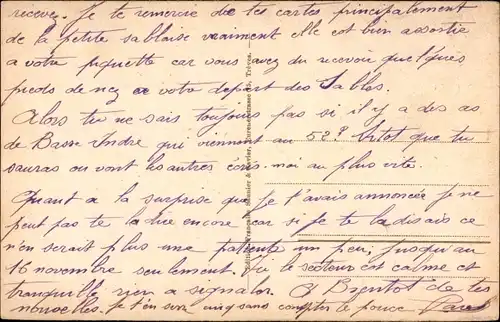 recevez. Je te remercie de tes cartes principalement
de la petite sablaise vraiment elle est bien assortie
a votre piquette car vous avez du recevoir quelques
pieds de nez a votre depart des Sables.
Alors tu ne sais toujours pas si il y a des as
de Basse Indre qui viennent au 52e bitot que tu
sauras ou vont les autres écris-moi au plus vite.
Quant a la surprise que je t'avais annoncée je ne
peut pas te la dire encore car si je te la disais ce
n'en serait plus une patiente un peu, jusqu'au
16 novembre seulement. Ici le secteur est calme et
tranquille rien a signaler. A Bientôt de tes
nouvelles. Je t'en serr cinq sans compter le pouce Paul